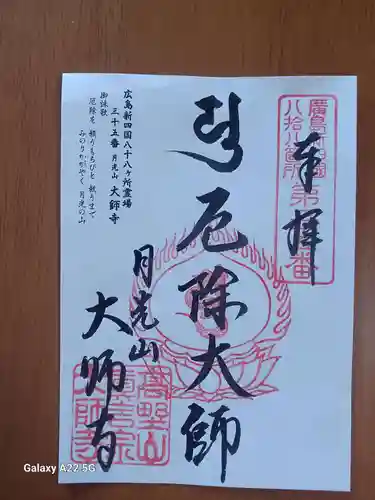 奉拝
廣島新四國
八拾八箇所
第
番
厄除大師
月光山
大師寺
広島新四国八十八ヶ所霊場
三十五番 月光山 大師寺
御詠歌
厄除を 頼りもちびと 救りまで
みのりかがやく 月光の山
高野山
真言宗
大師寺
Galaxy A22 5G